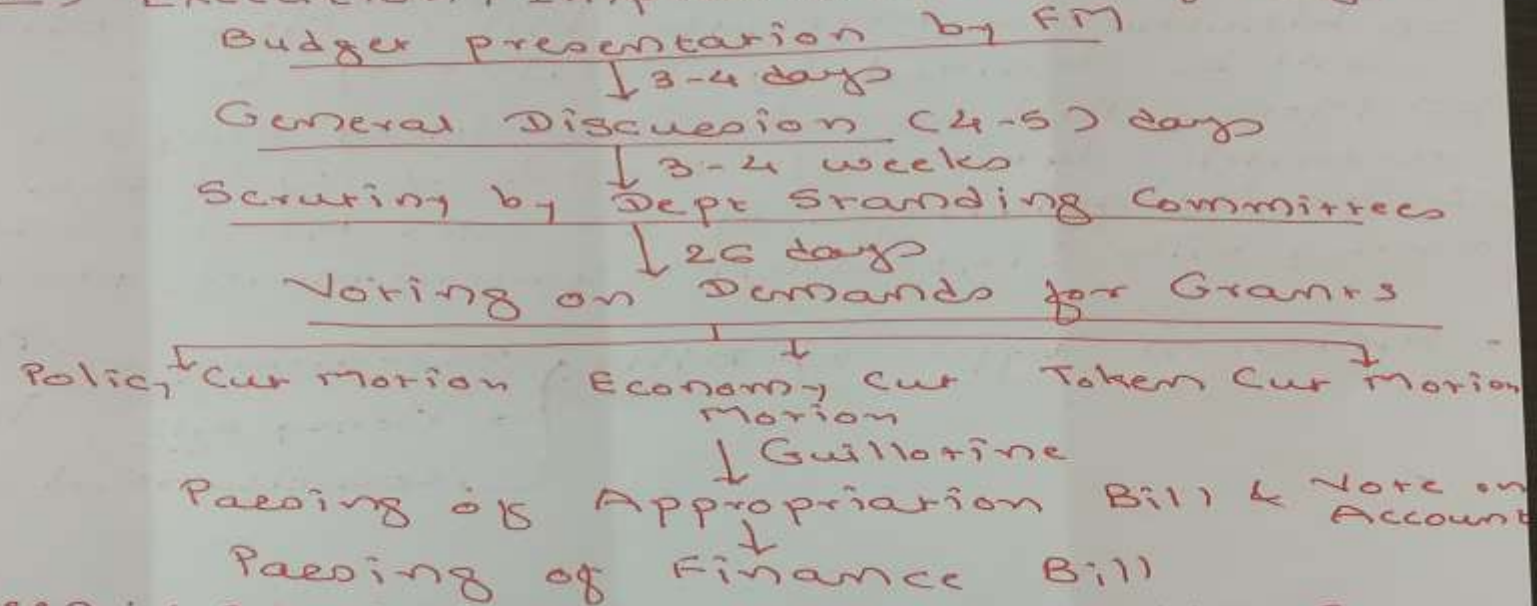 Budget presentation by FM
↓ 3-4 days
General Discussion (4-5) days
↓ 3-4 weeks
Scrutiny by Dept Standing Committees
↓ 26 days
Voting on Demands for Grants
Policy Cut Motion Economy Cut Motion Token Cut Motion
↓ Guillotine
Passing of Appropriation Bill & Vote on Account
↓
Passing of Finance Bill